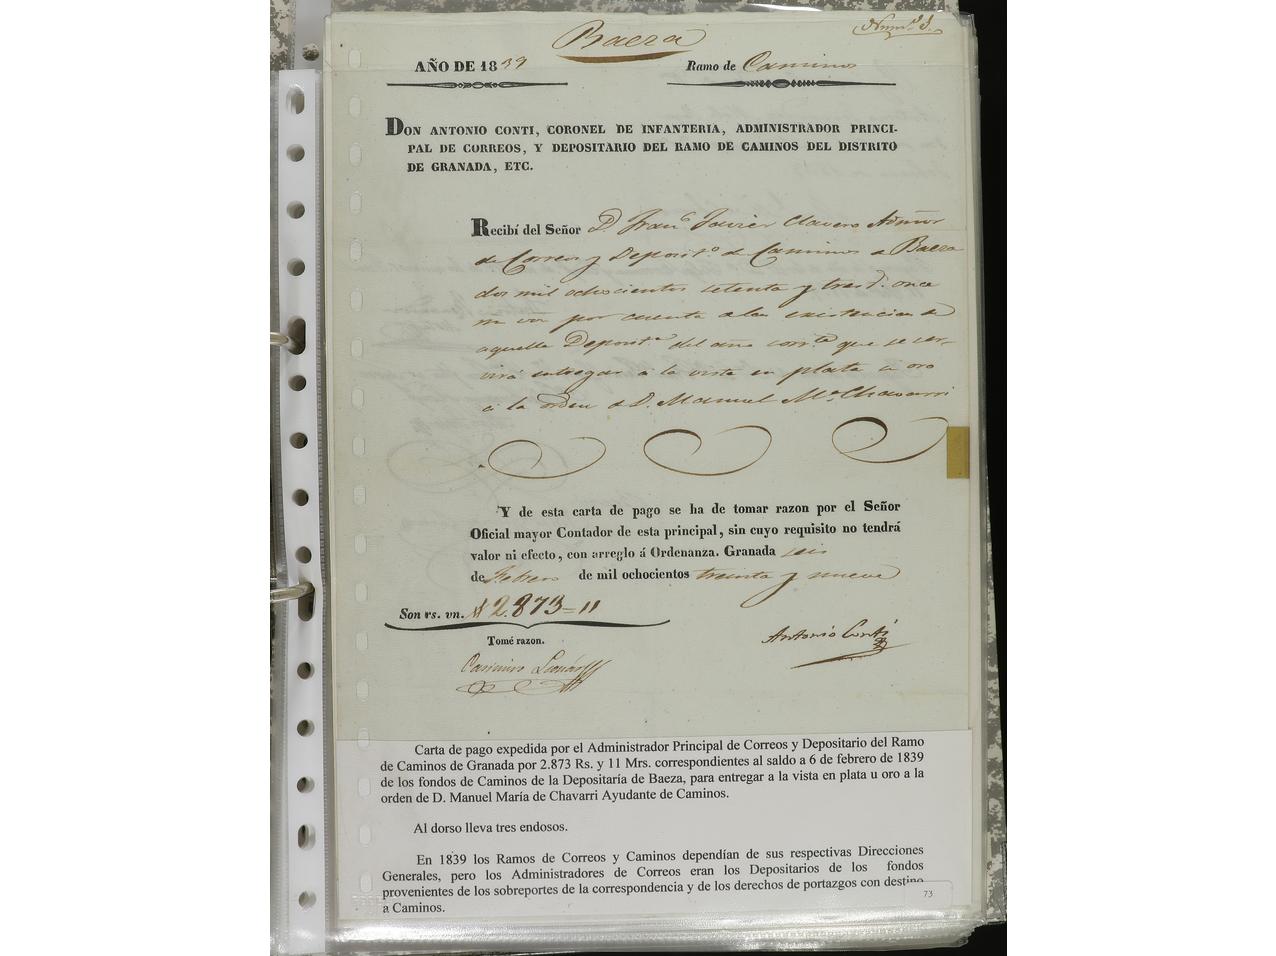 Baeza
Num.º 3.
AÑO DE 1839 Ramo de Caminos
DON ANTONIO CONTI, CORONEL DE INFANTERIA, ADMINISTRADOR PRINCI-
PAL DE CORREOS, Y DEPOSITARIO DEL RAMO DE CAMINOS DEL DISTRITO
DE GRANADA, ETC.
Recibí del Señor D. Fran.co Javier Clavero Admor
de Correos y Deposit.o de Caminos de Baeza
dos mil ochocientos setenta y tres r.s once
m vn por cuenta a las existencias de
aquella Deposit.a del ano corr.te que se ser-
virá entregar a la vista en plata u oro
a la orden de D. Manuel M.a Chavarri
Y de esta carta de pago se ha de tomar razon por el Señor
Oficial mayor Contador de esta principal, sin cuyo requisito no tendrá
valor ni efecto, con arreglo á Ordenanza. Granada seis
de Febrero de mil ochocientos treinta y nueve
Son rs. vn. 2.873=11
Tomé razon.
Antonio Conti
Casimiro
Carta de pago expedida por el Administrador Principal de Correos y Depositario del Ramo
de Caminos de Granada por 2.873 Rs. y 11 Mrs. correspondientes al saldo a 6 de febrero de 1839
de los fondos de Caminos de la Depositaría de Baeza, para entregar a la vista en plata u oro a la
orden de D. Manuel María de Chavarri Ayudante de Caminos.
Al dorso lleva tres endosos.
En 1839 los Ramos de Correos y Caminos dependían de sus respectivas Direcciones
Generales, pero los Administradores de Correos eran los Depositarios de los fondos
provenientes de los sobreportes de la correspondencia y de los derechos de portazgos con destino
a Caminos.
73